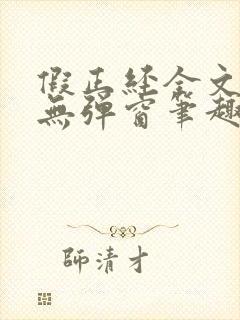 假正经全文
無彈窗筆趣
師清才